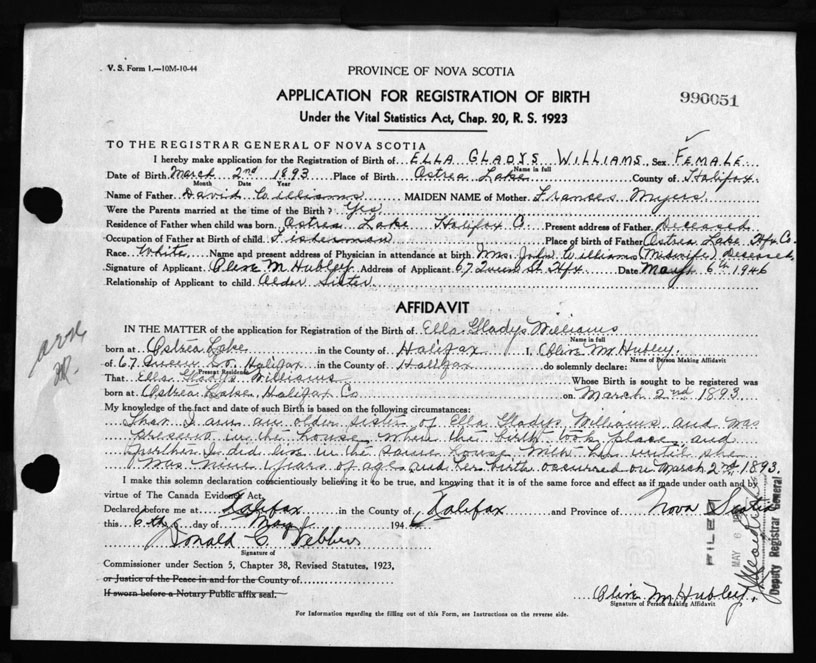 V. S. Form 1.—10M-10-44
PROVINCE OF NOVA SCOTIA
APPLICATION FOR REGISTRATION OF BIRTH
990051
Under the Vital Statistics Act, Chap. 20, R. S. 1923
TO THE REGISTRAR GENERAL OF NOVA SCOTIA
I hereby make application for the Registration of Birth of ELLA GLADYS WILLIAMS, Sex FEMALE
Name in full
Date of Birth March 2nd 1893 Place of Birth Ostrea Lake County of Halifax
Month Date Year
Name of Father David Williams MAIDEN NAME of Mother Frances Myers
Were the Parents married at the time of the Birth? Yes
Residence of Father when child was born Ostrea Lake Halifax C. Present address of Father Deceased
Occupation of Father at Birth of child Fisherman Place of birth of Father Ostrea Lake Hfx Co.
Race White Name and present address of Physician in attendance at birth Mrs. John Williams (Midwife) deceased
Signature of Applicant Olive M Hubley Address of Applicant 67 St Hfx Date May 6th 1946
Relationship of Applicant to child Older Sister
AFFIDAVIT
IN THE MATTER of the application for Registration of the Birth of Ella Gladys Williams
Name in full
born at Ostrea Lake in the County of Halifax I, Olive M Hubley
Name of Person Making Affidavit
of 67 St. Halifax in the County of Halifax do solemnly declare:
Present Residence
That Ella Gladys Williams Whose Birth is sought to be registered was
born at Ostrea Lake, Halifax Co on March 2nd 1893
My knowledge of the fact and date of such Birth is based on the following circumstances:
That I am an older sister of Ella Gladys Williams and was
present in the house when the birth took place, and
further I did live in the same house with her until she
was nine years of age and her birth occurred on March 2nd 1893.
I make this solemn declaration conscientiously believing it to be true, and knowing that it is of the same force and effect as if made under oath and by
virtue of The Canada Evidence Act.
Declared before me at Halifax in the County of Halifax and Province of Nova Scotia
this 6th day of May 194
Donald C.
Signature of
Commissioner under Section 5, Chapter 38, Revised Statutes, 1923,
or Justice of the Peace in and for the County of
If sworn before a Notary Public affix seal.
Olive M Hubley
Signature of Person making Affidavit
For Information regarding the filling out of this Form, see Instructions on the reverse side.
FILED
MAY 6
Deputy Registrar General